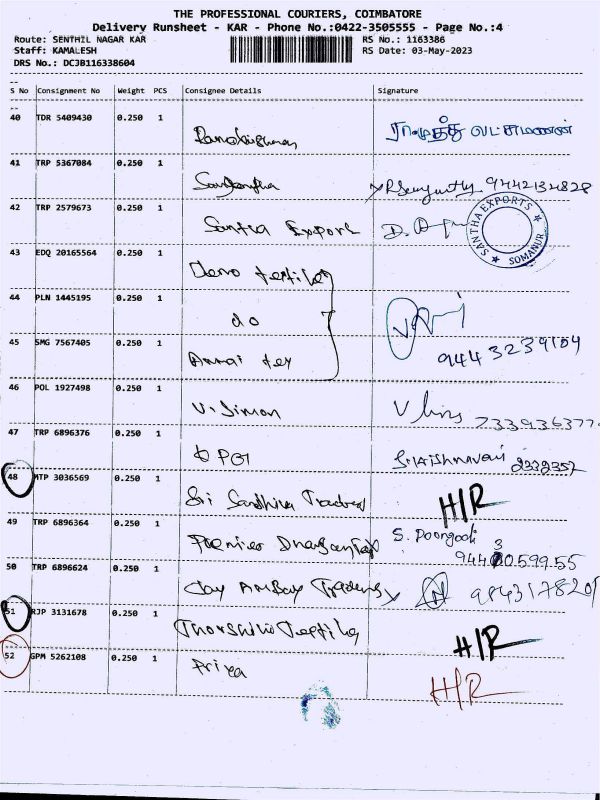 THE PROFESSIONAL COURIERS, COIMBATORE
Delivery Runsheet - KAR - Phone No.:0422-3505555 - Page No.:4
Route: SENTHIL NAGAR KAR RS No.: 1163386
Staff: KAMALESH RS Date: 03-May-2023
DRS No.: DCJB116338604
S No Consignment No Weight PCS Consignee Details Signature
40 TDR 5409430 0.250 1
41 TRP 5367084 0.250 1 9442134828
42 TRP 2579673 0.250 1 Santha Export
SANTHA EXPORTS ★ SOMANUR ★
43 EDQ 20165564 0.250 1
44 PLN 1445195 0.250 1 do
45 SMG 7567405 0.250 1 Annai tex
46 POL 1927498 0.250 1 V. Simon 733993637
47 TRP 6896376 0.250 1 2332357
48 MTP 3036569 0.250 1 Sri H/R
49 TRP 6896364 0.250 1 Premier S. Poongodi
50 TRP 6896624 0.250 1 Jay Ambay Traders
51 RJP 3131678 0.250 1 H/R
52 GPM 5262108 0.250 1 Priya H/R